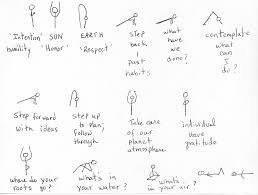 'Intention' SUN EARTH step what contemplate
humility 'Honor' 'Respect' back have what
past we can
habits done? I
do?
Step forward step up Take care individual
with ideas to Plan; of our have
follow planet gratitude
through atmosphere
where do your what's in what's in
roots go? your water? your air?